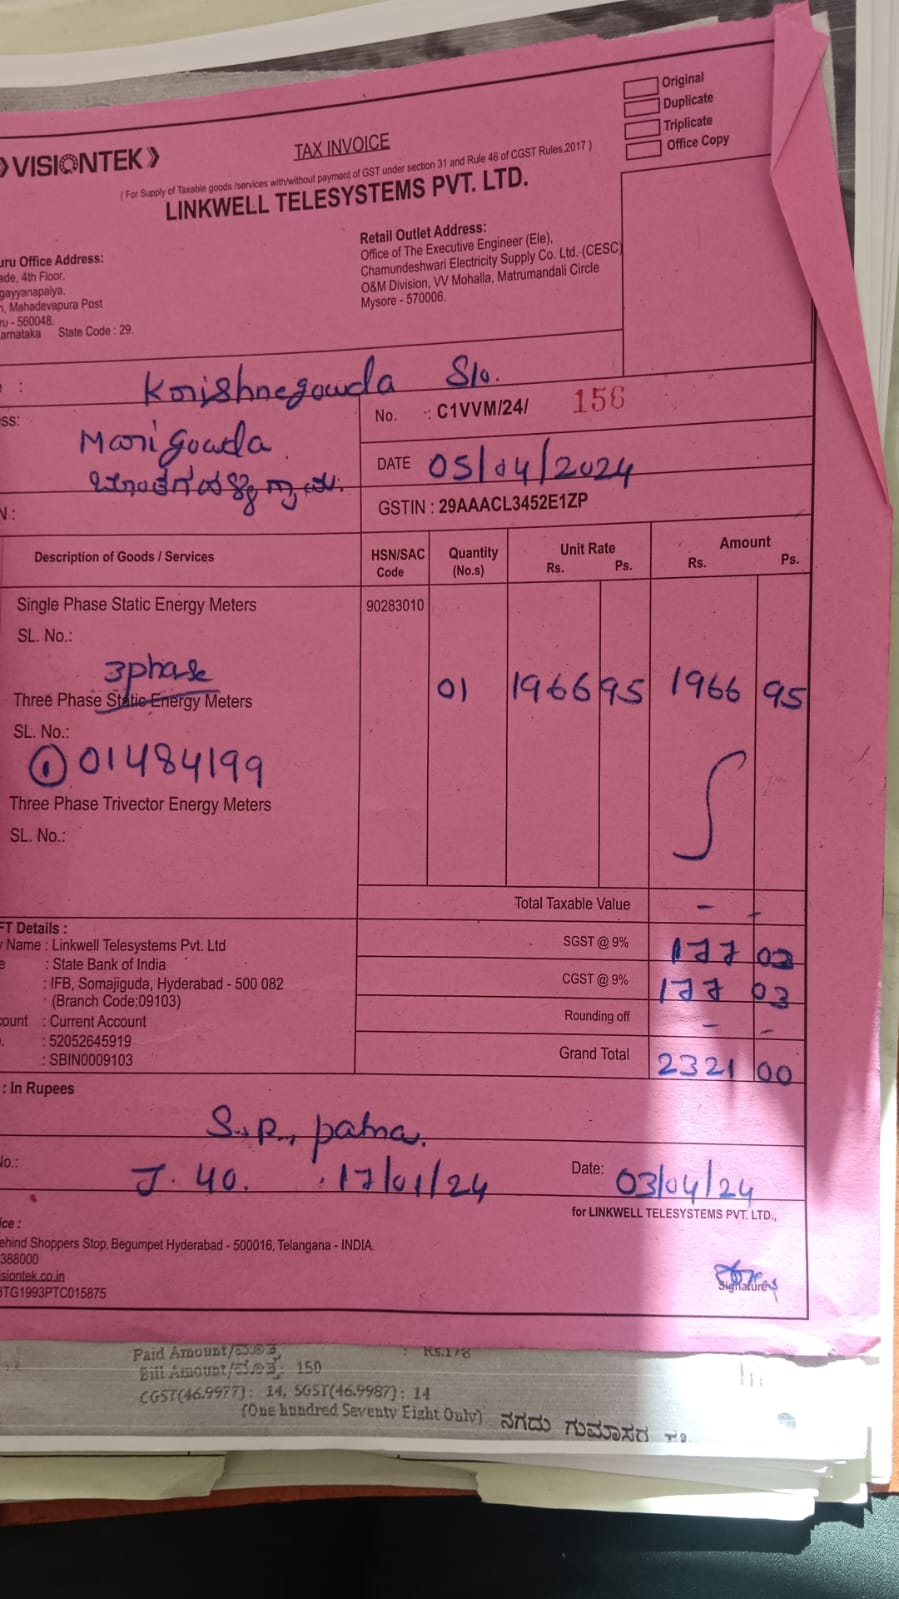 VISIONTEK
TAX INVOICE
( For Supply of Taxable goods /services with/without payment of GST under section 31 and Rule 46 of CGST Rules.2017 )
LINKWELL TELESYSTEMS PVT. LTD.
Original
Duplicate
Triplicate
Office Copy
uru Office Address:
ade, 4th Floor,
gayyanapalya,
n, Mahadevapura Post
ru - 560048.
arnataka State Code : 29.
Retail Outlet Address:
Office of The Executive Engineer (Ele),
Chamundeshwari Electricity Supply Co. Ltd. (CESC)
O&M Division, VV Mohalla, Matrumandali Circle
Mysore - 570006.
: Krishnegowda S/o.
ess: Marigowda
No. : C1VVM/24/ 156
DATE 05/04/2024
N :
GSTIN : 29AAACL3452E1ZP
Description of Goods / Services HSN/SAC Code Quantity (No.s) Unit Rate Rs. Ps. Amount Rs. Ps.
Single Phase Static Energy Meters 90283010
SL. No.:
3phase
Three Phase Static Energy Meters 01 1966 95 1966 95
SL. No.:
① 01484199
Three Phase Trivector Energy Meters
SL. No.:
Total Taxable Value - -
SGST @ 9% 177 03
CGST @ 9% 177 03
Rounding off - -
Grand Total 2321 00
FT Details :
Name : Linkwell Telesystems Pvt. Ltd
e : State Bank of India
: IFB, Somajiguda, Hyderabad - 500 082
(Branch Code:09103)
count : Current Account
: 52052645919
: SBIN0009103
: In Rupees
S.R. patna.
No.: J. 40. 17/01/24 Date: 03/04/24
for LINKWELL TELESYSTEMS PVT. LTD.,
ice :
ehind Shoppers Stop, Begumpet Hyderabad - 500016, Telangana - INDIA.
388000
siontek.co.in
TG1993PTC015875
Signature
Paid Amount/ಮೊತ್ತ : Rs.178
Bill Amount/ಮೊತ್ತ: 150
CGST(46.9977): 14, SGST(46.9987): 14
(One hundred Seventy Eight Only) ನಗದು ಗುಮಾಸ್ತರ